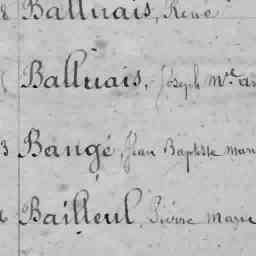 8 Balluais, René
Balluais, Joseph Mie
3 Baugé, Jean Baptiste
Bailleul, Pierre Marie